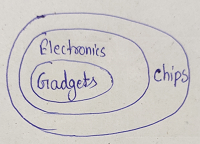 Electronics
Gadgets
chips